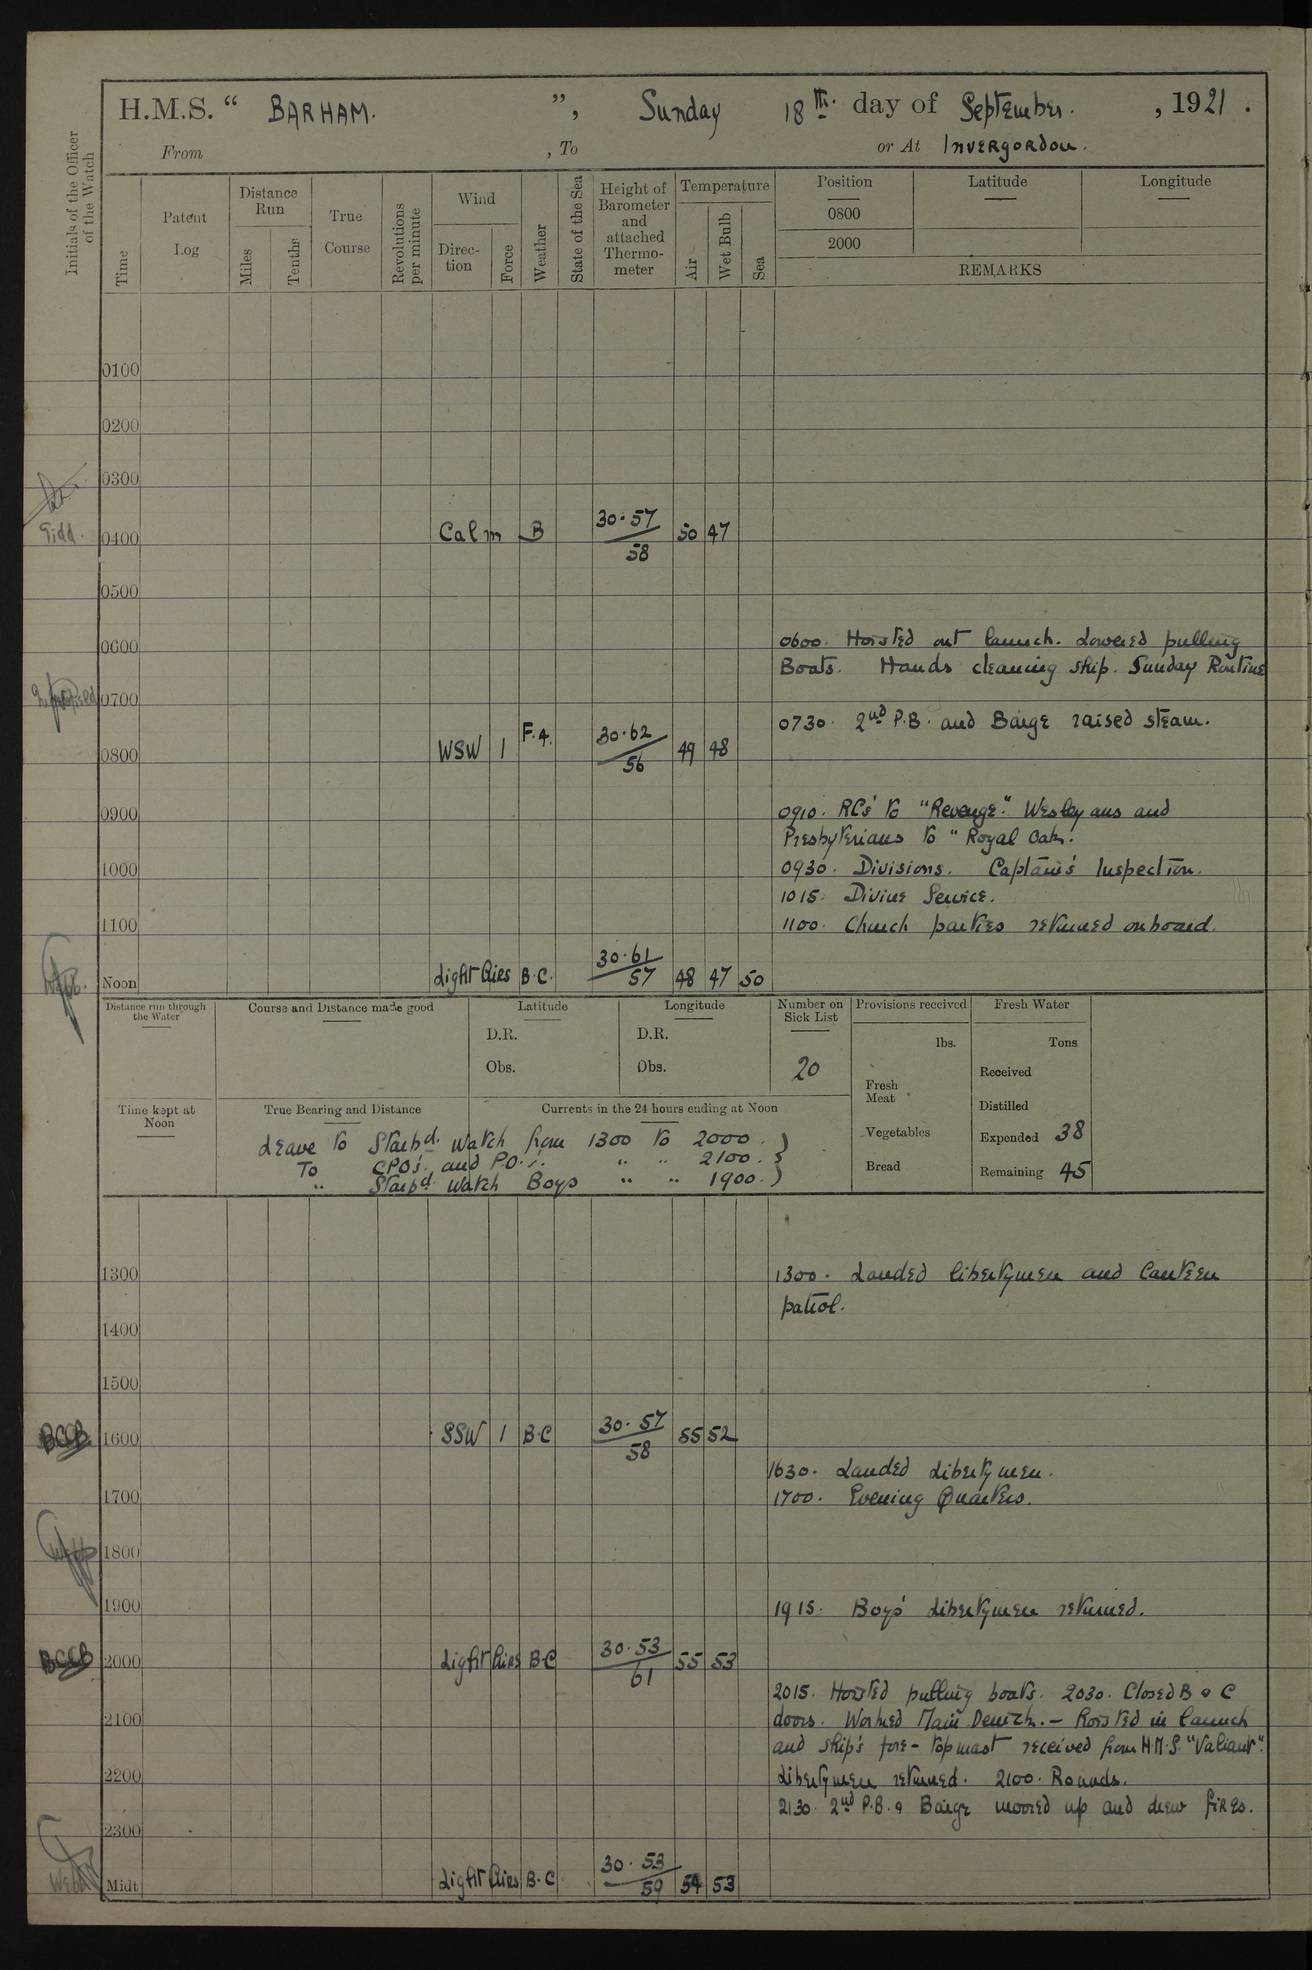 H.M.S. “ BARHAM. ”, Sunday 18th. day of September. , 1921 .
From , To or At Invergordon.
Initials of the Officer of the Watch
Time
Patent Log
Distance Run
Miles
Tenths
True Course
Revolutions per minute
Wind
Direc-tion
Force
Weather
State of the Sea
Height of Barometer and attached Thermo-meter
Temperature
Air
Wet Bulb
Sea
Position Latitude Longitude
0800
2000
REMARKS
0100
0200
0300
0400 Calm B 30.57/58 50 47
0500
0600
0600. Hoisted out launch. Lowered pulling
Boats. Hands cleaning ship. Sunday Routine
0700
0730. 2nd P.B. and Barge raised steam.
0800 WSW 1 F.4. 30.62/56 49 48
0900
0910. RCs' to "Revenge". Wesleyans and
Presbyterians to "Royal Oak".
1000
0930. Divisions. Captain's Inspection.
1015. Divine Service.
1100
1100. Church parties returned onboard.
Noon Light Airs B.C. 30.61/57 48 47 50
Distance run through the Water
Course and Distance made good
Latitude
D.R.
Obs.
Longitude
D.R.
Obs.
Number on Sick List
20
Provisions received
lbs.
Fresh Meat
Vegetables
Bread
Fresh Water
Tons
Received
Distilled
Expended 38
Remaining 45
Time kept at Noon
True Bearing and Distance
Currents in the 24 hours ending at Noon
Leave to Starbd. Watch from 1300 to 2000. }
To CPO's. and P.O.'s. " " 2100. }
" Starbd. Watch Boys " " 1900. }
1300
1300. Landed libertymen and Canteen
patrol.
1400
1500
BCCB
1600 SSW 1 B.C 30.57/58 55 52
1630. Landed Libertymen.
1700
1700. Evening Quarters.
1800
1900
1915. Boys' Libertymen returned.
BCCB
2000 Light Airs B.C 30.53/61 55 53
2015. Hoisted pulling boats. 2030. Closed B & C
2100
doors. Worked Main Derrick. - Hoisted in launch
and ship's fore-topmast received from H.M.S. "Valiant".
2200
Libertymen returned. 2100. Rounds.
2130. 2nd P.B. & Barge moored up and drew fires.
2300
Midt Light Airs B.C 30.53/59 54 53